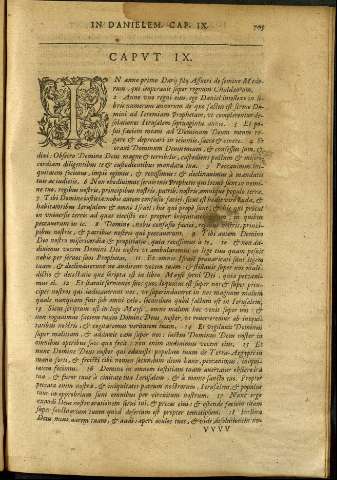 IN DANIELEM. CAP. IX. 705
CAPVT IX.
IN anno primo Darij filij Assueri de semine Medo-
rum, qui imperauit super regnum Chaldæorum.
2 Anno vno regni eius, ego Daniel intellexi in li-
bris numerum annorum de quo factus est sermo Do-
mini ad Ieremiam Prophetam, vt complerentur de-
solationis Ierusalem septuaginta anni. 3 Et po-
sui faciem meam ad Dominum Deum meum roga-
re & deprecari in ieiunijs, sacco & cinere. 4 Et
oraui Dominum Deum meum, & confessus sum, &
dixi: Obsecro Domine Deus magne & terribilis, custodiens pactum & miseri-
cordiam diligentibus te & custodientibus mandata tua. 5 Peccauimus, ini-
quitatem fecimus, impiè egimus, & recessimus: & declinauimus à mandatis
tuis ac iudicijs. 6 Non obediuimus seruis tuis Prophetis qui locuti sunt in nomi-
ne tuo, regibus nostris, principibus nostris, patribus nostris, omnique populo terræ.
7 Tibi Domine iustitia: nobis autem confusio faciei, sicut est hodie viro Iuda, &
habitatoribus Ierusalem & omni Israel
in vniuersis terris ad quas eiecisti eos propter iniquitates eorum in quibus
peccauerunt in te. 8 Domine, nobis confusio faciei, regibus nostris, principibus
nostris, & patribus nostris qui peccauerunt. 9 Tibi autem Domino
Deo nostro misericordia & propitiatio, quia recessimus à te, 10 & non au-
diuimus vocem Domini Dei nostri vt ambularemus in lege eius quam posuit
nobis per seruos suos Prophetas. 11 Et omnis Israel præuaricati sunt legem
tuam, & declinauerunt ne audirent vocem tuam: & stillauit super nos male-
dictio & detestatio quæ scripta est in libro Moysi serui Dei, quia peccaui-
mus ei. 12 Et statuit sermones suos quos locutus est super nos & super prin-
cipes nostros qui iudicauerunt nos, vt superinduceret in nos magnum malum
quale nunquam fuit sub omni cælo, secundum quod factum est in Ierusalem,
13 Sicut scriptum est in lege Moysi, omne malum hoc venit super nos: &
non rogauimus faciem tuam Domine Deus noster, vt reuerteremur ab iniqui-
tatibus nostris & cogitaremus veritatem tuam. 14 Et vigilauit Dominus
super malitiam, & adduxit eam super nos: iustus Dominus Deus noster in
omnibus operibus suis quæ fecit: non enim audiuimus vocem eius. 15 Et
nunc Domine Deus noster qui eduxisti populum tuum de Terra Aegypti in
manu forti, & fecisti tibi nomen secundum diem hanc, peccauimus, iniqui-
tatem fecimus. 16 Domine in omnem iustitiam tuam auertatur obsecro ira
tua, & furor tuus à ciuitate tua Ierusalem, & à monte sancto tuo. Propter
peccata enim nostra, & iniquitates patrum nostrorum, Ierusalem & populus
tuus in opprobrium sunt omnibus per circuitum nostrum. 17 Nunc ergo
exaudi Deus noster orationem serui tui, & preces eius: & ostende faciem tuam
super sanctuarium tuum quod desertum est propter temetipsum. 18 Inclina
Deus meus aurem tuam, & audi: aperi oculos tuos, & vide desolationem no-
VVVV